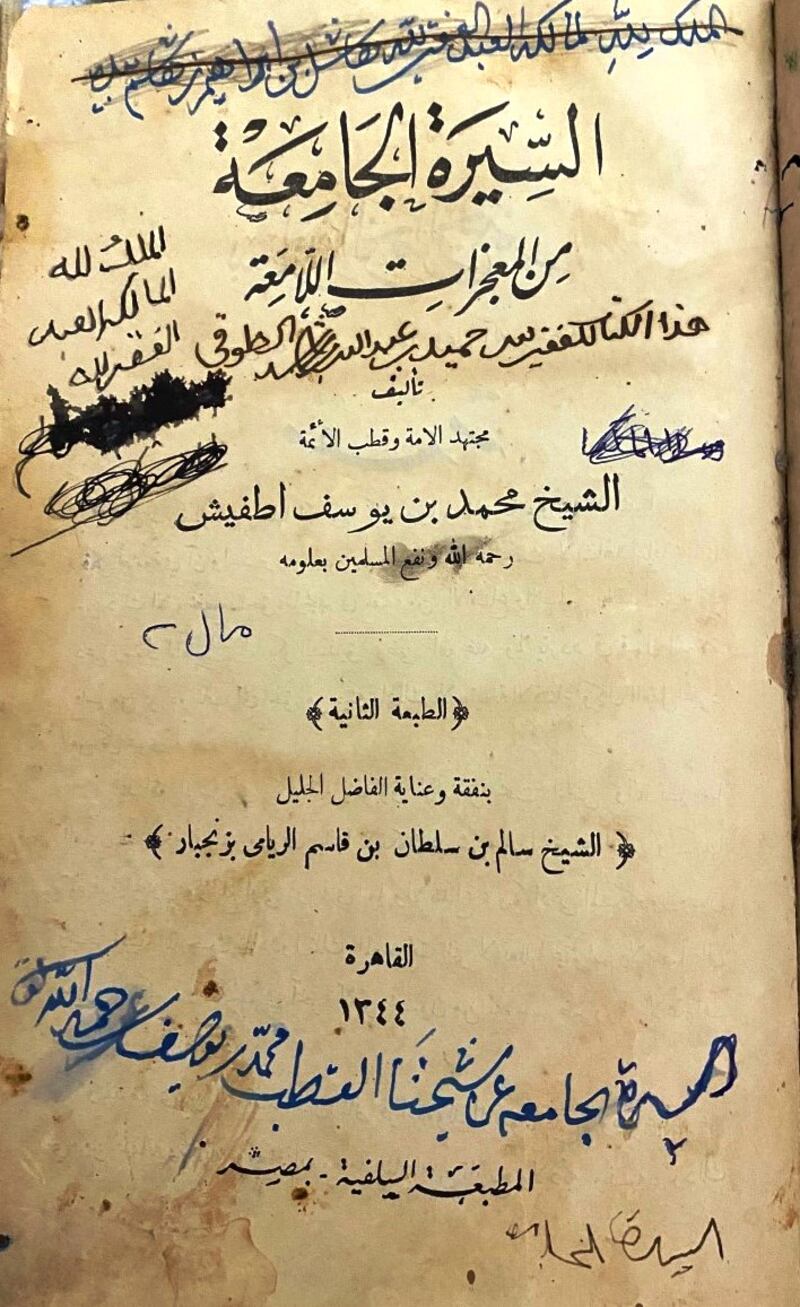 الملك لله لمالكه العبد الفقير لله
السِّيرَةُ الجَامِعَة
مِنَ المعجزاتِ اللّامِعَة
الملكُ لله
المالكه العبد
الفقير لله
هذا الكتاب للفقير حميد بن عبدالله الطوقي
تأليف
مجتهد الامة وقطب الأئمة
الشيخ محمد بن يوسف اطفيش
رحمه الله ونفع المسلمين بعلومه
مال
﴿ الطبعة الثانية ﴾
بنفقة وعناية الفاضل الجليل
﴿ الشيخ سالم بن سلطان بن قاسم الريامى بزنجبار ﴾
القاهرة
١٣٤٤
السيرة الجامعه عن شيخنا القطب محمّد بن يوسف رحمه الله
المطبعَة السلفية - بمصر
السيرة